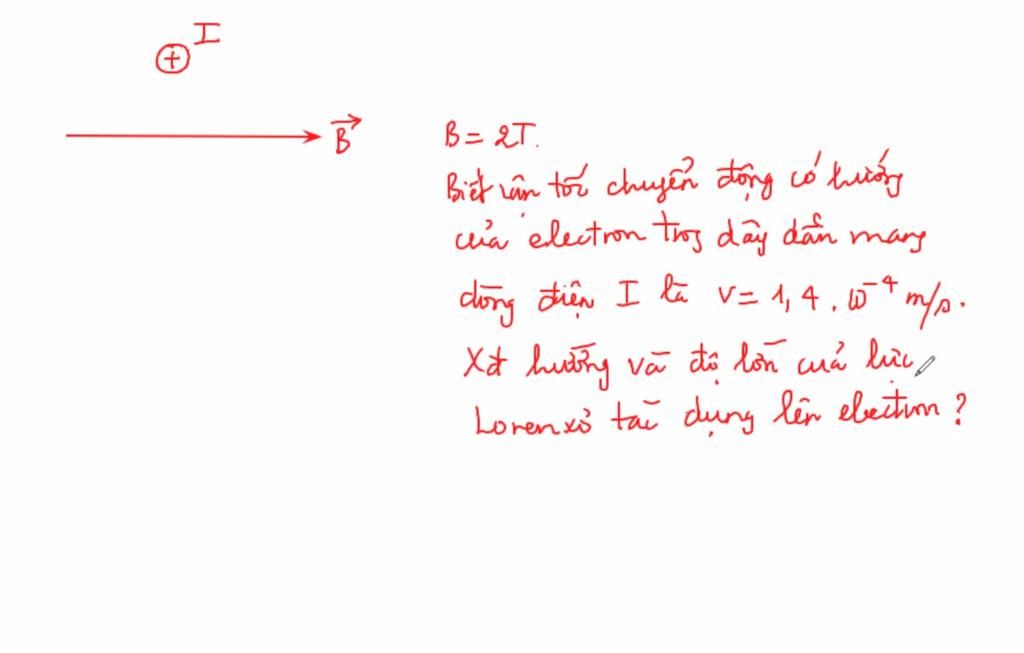 I
⊕
B
B = 2T.
Biết vận tốc chuyển động có hướng
của electron trog dây dẫn mang
dòng điện I là v = 1,4 . 10⁻⁴ m/s.
Xđ hướng và độ lớn của lực
Lorenxơ tác dụng lên electron ?